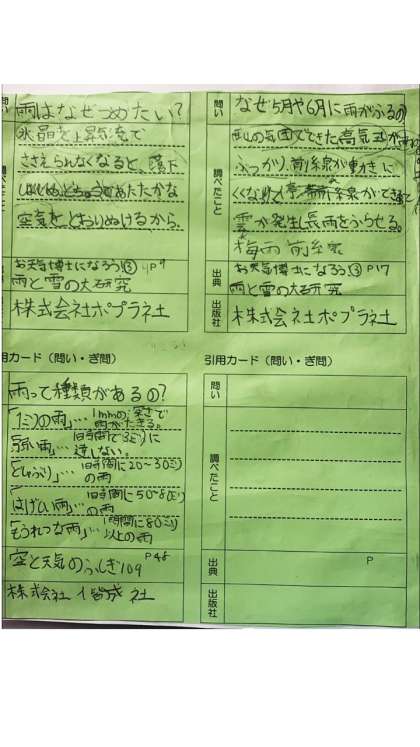 問い
雨はなぜつめたい？
氷晶を上昇気流で
ささえられなくなると、落下
しはじめ、とちゅうであたたかな
空気を、とおりぬけるから。
お天気博士になろう③ 4P9
雨と雪の大研究
株式会社ポプラ社
問い
なぜ5月や6月に雨がふるの
調べたこと
の気団でできた高気圧が
ぶつかり、前線が動きに
くくなり
雲が発生し長雨をふらせる。
梅雨前線
出典
お天気博士になろう③ P17
雨と雪の大研究
出版社
株式会社ポプラ社
用カード（問い・ぎ問）
雨って種類があるの？
1mmの深さで
雨がたまる。
弱い雨…1時間で3ミリに
達しない。
どしゃぶり」…1時間に20～30ミリ
の雨
はげしい雨」…1時間に50～80ミリ
の雨
もうれつな雨」…1時間に80ミリ
以上の雨
空と天気のふしぎ109 P48
株式会社 偕成社
引用カード（問い・ぎ問）
問い
調べたこと
出典
P
出版社